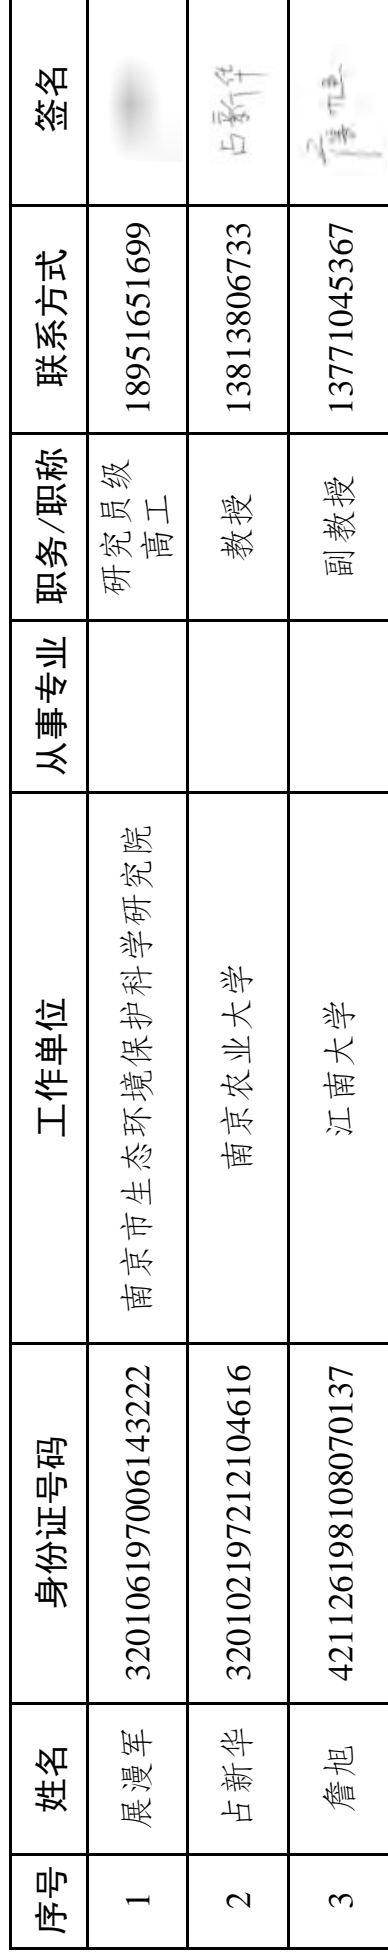 序号 姓名 身份证号码 工作单位 从事专业 职务/职称 联系方式 签名
1 展漫军 320106197006143222 南京市生态环境保护科学研究院 研究员级 18951651699
高工
2 占新华 320102197212104616 南京农业大学 教授 13813806733 占新华
3 詹旭 421126198108070137 江南大学 副教授 13771045367 詹旭